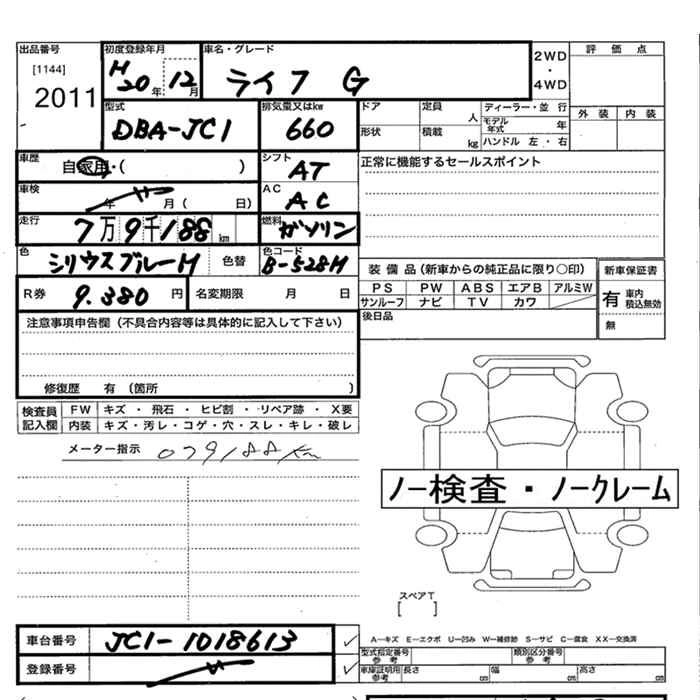 出品番号 [1144] 2011
初度登録年月 H20年 12月
車名・グレード ライフ G
2WD・4WD
評価点
外装 内装
型式 DBA-JC1
排気量又はkw 660
ドア 定員 人 ディーラー・並行
形状 積載 kg モデル年式 年
ハンドル 左・右
車歴 自家用・( )
シフト AT
正常に機能するセールスポイント
車検 年 月( 日)
AC AC
走行 7万9千188km
燃料 ガソリン
色 シリウスブルーM 色替
色コード B-528M
装備品(新車からの純正品に限り○印)
新車保証書
PS PW ABS エアB アルミW
有 車内積込無効
R券 9.380円 名変期限 月 日
サンルーフ ナビ TV カワ
無
後日品
注意事項申告欄(不具合内容等は具体的に記入して下さい)
修復歴 有(箇所 )
検査員記入欄
FW キズ・飛石・ヒビ割・リペア跡・X要
内装 キズ・汚レ・コゲ・穴・スレ・キレ・破レ
メーター指示 079188km
ノー検査・ノークレーム
スペアT
[ ]
車台番号 JC1-1018613
A―キズ E―エクボ U―凹み W―補修跡 S―サビ C―腐食 XX―交換済
型式指定番号 参考 類別区分番号 参考
登録番号
車庫証明用 参考 長さ cm 幅 cm 高さ cm